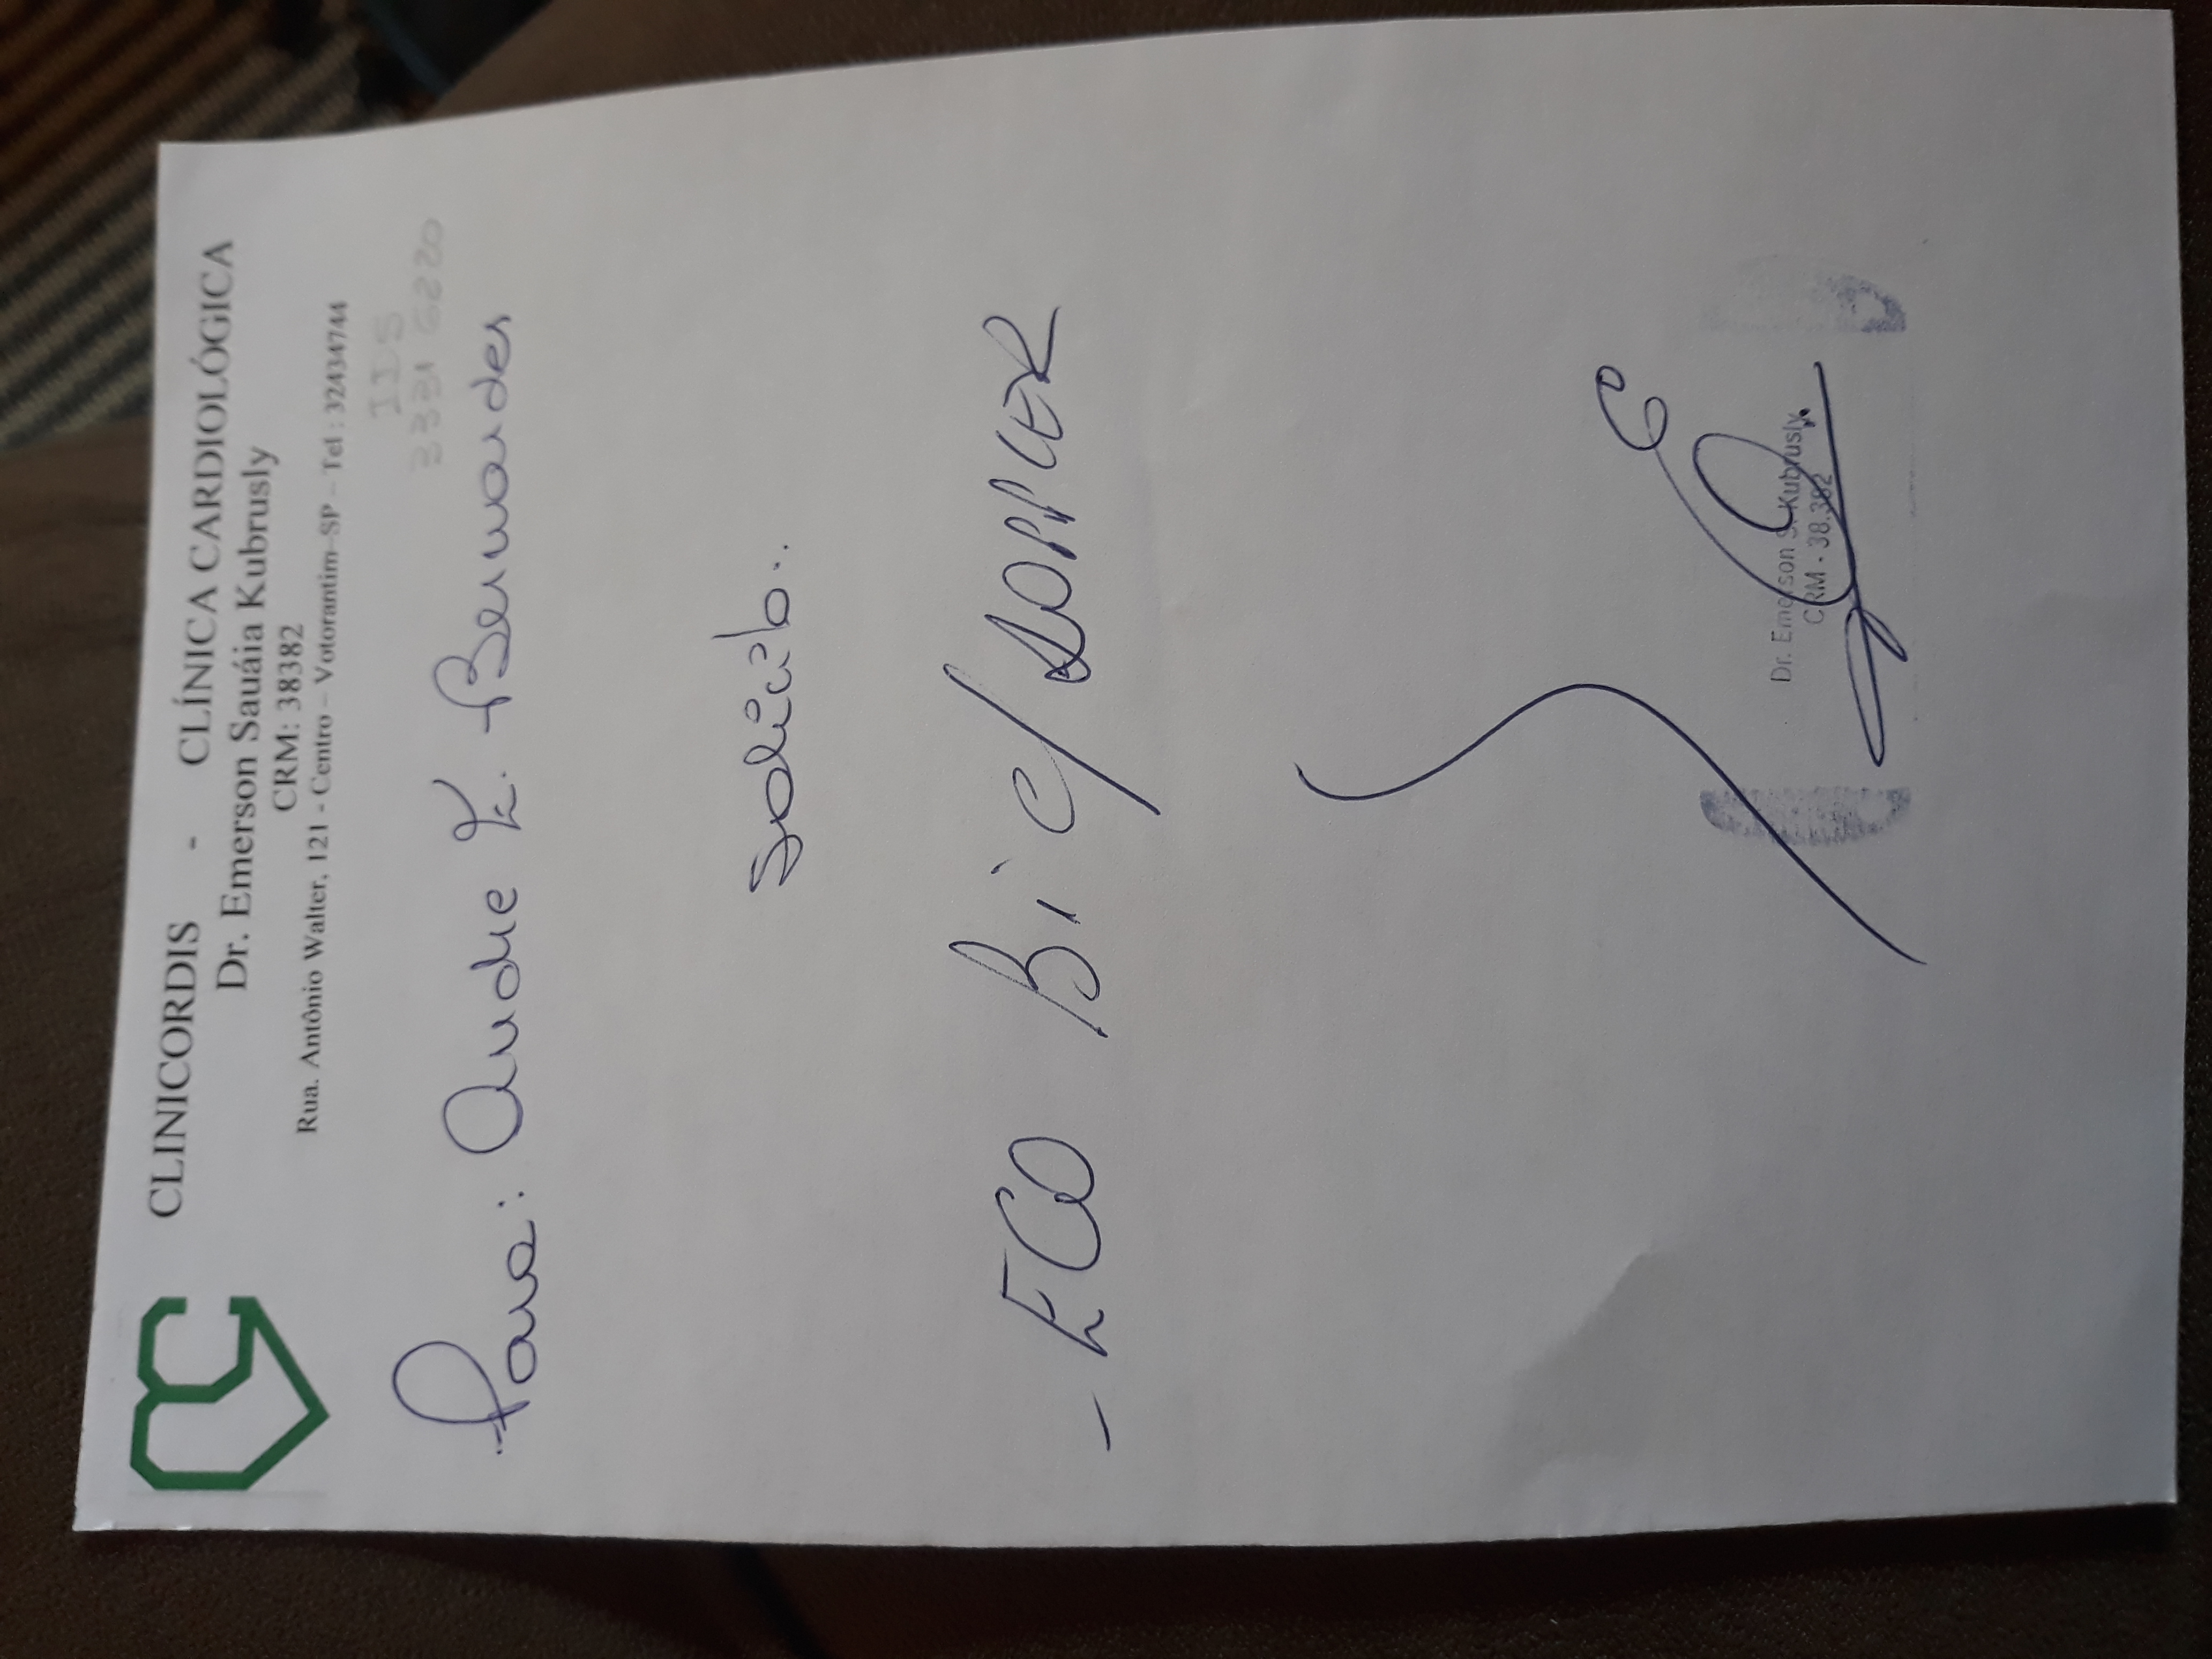 CLINICORDIS - CLÍNICA CARDIOLÓGICA
Dr. Emerson Sauáia Kubrusly
CRM: 38382
Rua. Antônio Walter, 121 - Centro – Votorantim–SP – Tel : 32434744
IDS
3331 6220
Para: Andre Z. Bernardes
Solicito..
- ECO Bi c/ DOPPLER
Dr. Emerson S. Kubrusly
CRM - 38.382